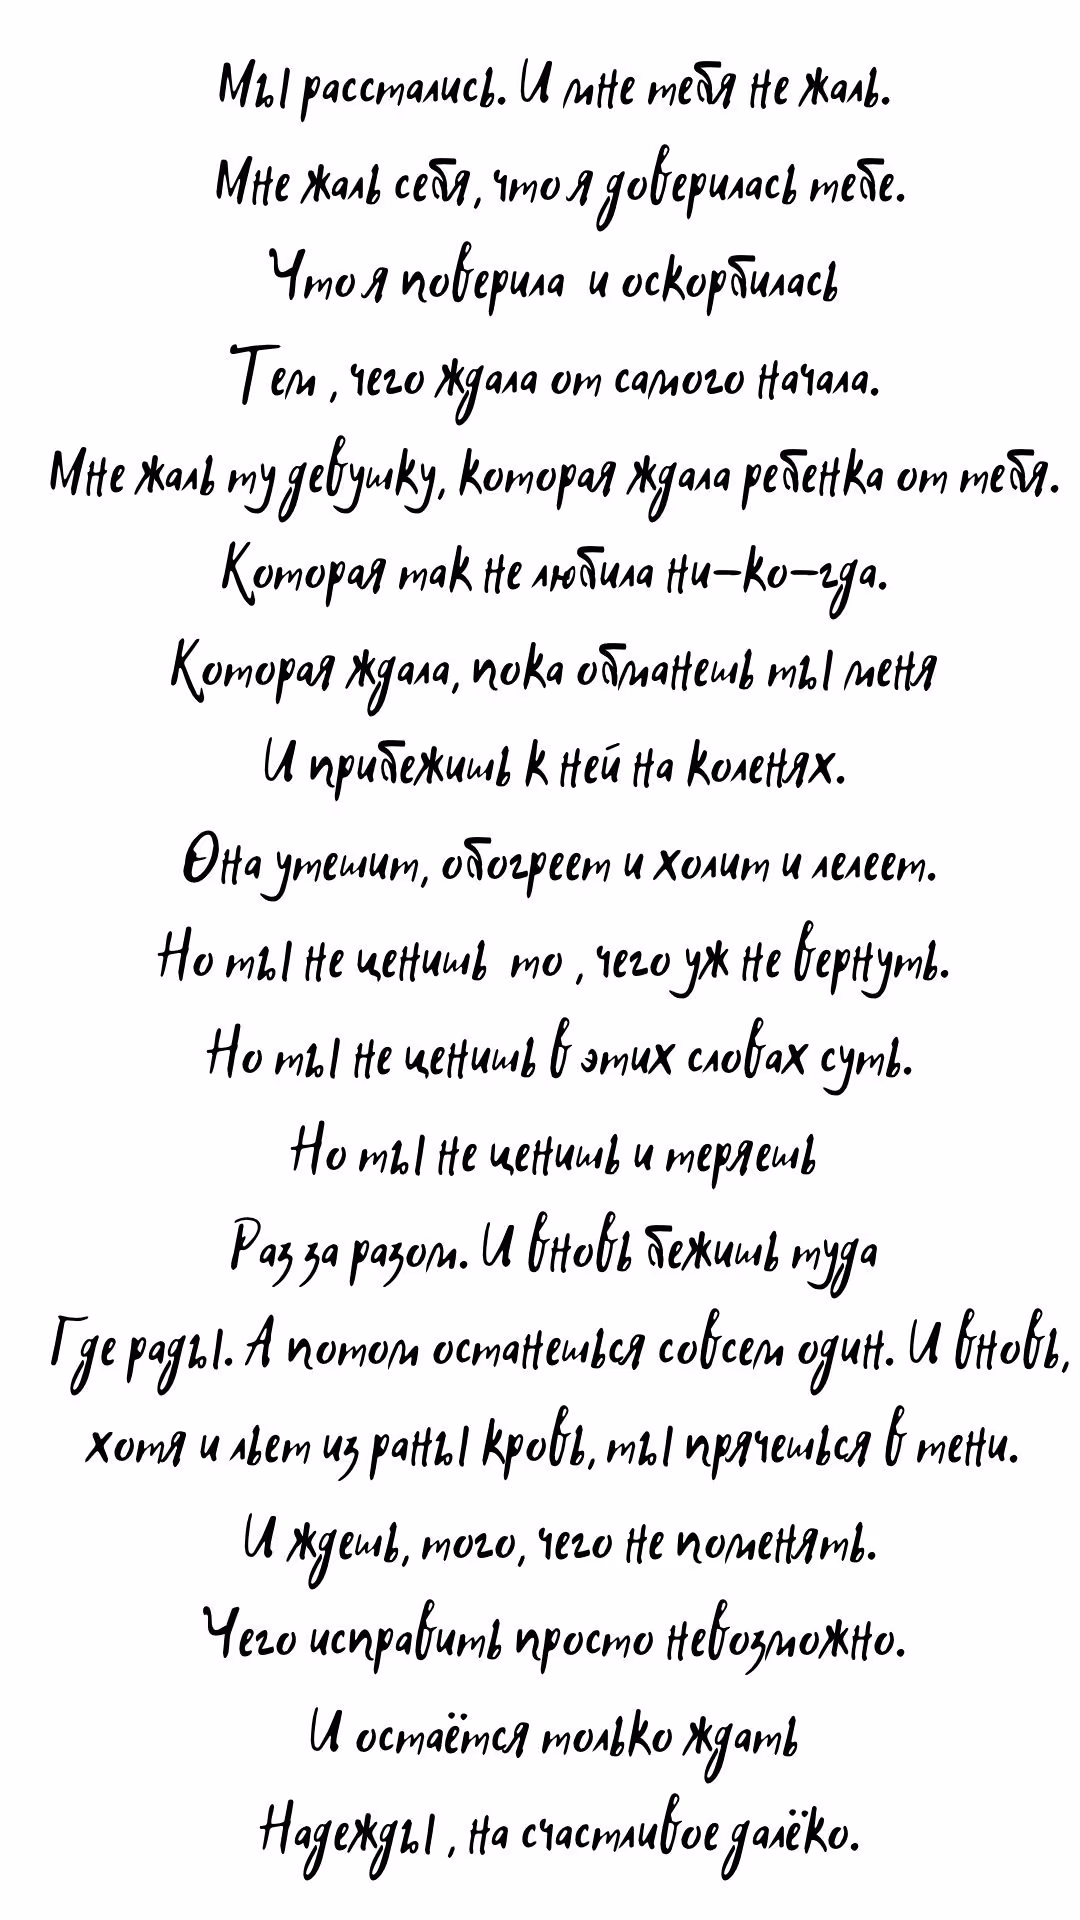 Мы расстались. И мне тебя не жаль.
Мне жаль себя, что я доверилась тебе.
Что я поверила и оскорбилась
Тем , чего ждала от самого начала.
Мне жаль ту девушку, которая ждала ребенка от тебя.
Которая так не любила ни-ко-гда.
Которая ждала, пока обманешь ты меня
И прибежишь к ней на коленях.
Она утешит, обогреет и холит и лелеет.
Но ты не ценишь то , чего уж не вернуть.
Но ты не ценишь в этих словах суть.
Но ты не ценишь и теряешь
Раз за разом. И вновь бежишь туда
Где рады. А потом останешься совсем один. И вновь,
хотя и льет из раны кровь, ты прячешься в тени.
И ждешь, того, чего не поменять.
Чего исправить просто невозможно.
И остаётся только ждать
Надежды , на счастливое далёко.